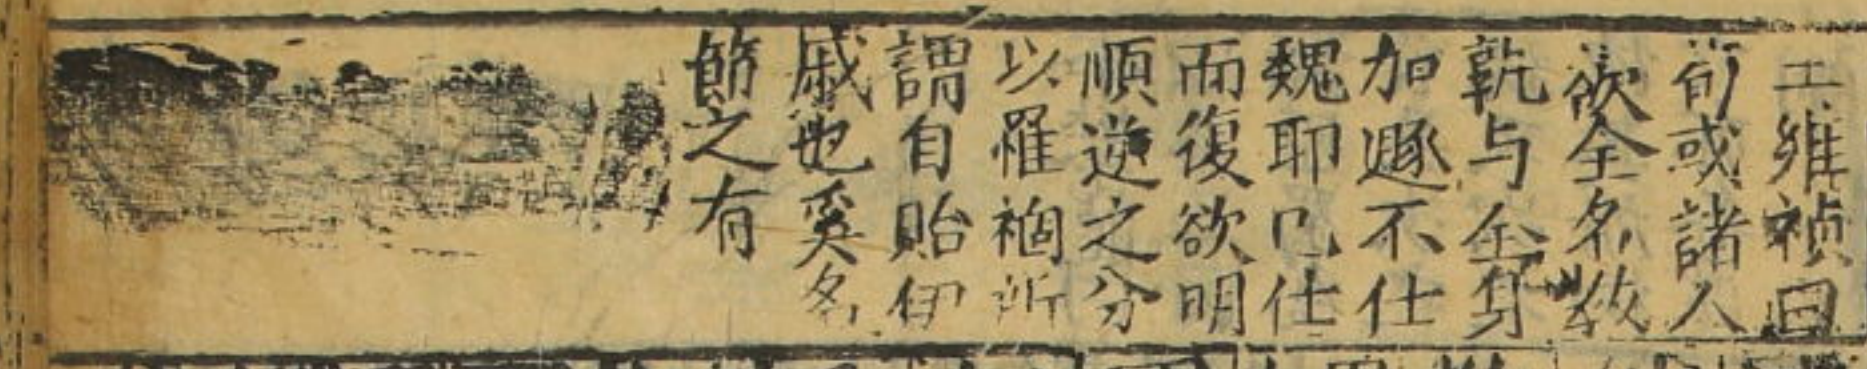 王維禎曰
荀或諸人
欲全名教
孰与全身
加遯不仕
魏耶已仕
而復欲明
順逆之分
以罹禍所
謂自貽伊
戚也奚名
節之有